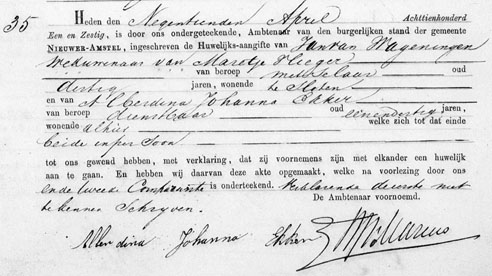 35
Heden den Negentienden April Achttienhonderd
Een en Zestig, is door ons ondergeteekende, Ambtenaar van den burgerlijken stand der gemeente
NIEUWER-AMSTEL, ingeschreven de Huwelijks-aangifte van Jan van Wageningen
weduwenaar van Maretje Vlieger
van beroep metselaar oud
dertig jaren, wonende te Sloten
en van Alberdina Johanna Ekker
van beroep dienstbaar oud eenendertig jaren,
wonende alhier welke zich tot dat einde
beide in persoon
tot ons gewend hebben, met verklaring, dat zij voornemens zijn met elkander een huwelijk
aan te gaan. En hebben wij daarvan deze akte opgemaakt, welke na voorlezing door ons
en de tweede Comparante is onderteekend. Verklarende de eerste niet
te kennen Schryven. De Ambtenaar voornoemd.
Johanna Ekker